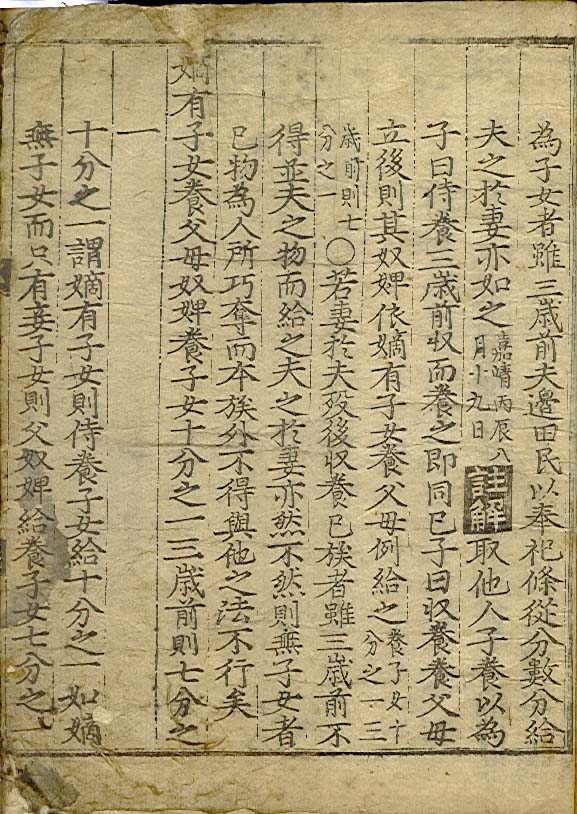 為子女者雖三歲前夫邊田民以奉祀條從分數分給
夫之於妻亦如之嘉靖丙辰八月十九日註解取他人子養以為
子曰侍養三歲前収而養之即同已子曰収養養父母
立後則其奴婢依嫡有子女養父毋例給之養子女十分之一三
歲前則七分之一○若妻於夫歿後収養已族者雖三歲前不
得並夫之物而給之夫之於妻亦然不然則無子女者
已物為人所巧奪而本族外不得與他之法不行矣
嫡有子女養父母奴婢養子女十分之一三歲前則七分之
一
十分之一謂嫡有子女則侍養子女給十分之一如嫡
無子女而只有妾子女則父奴婢給養子女七分之一